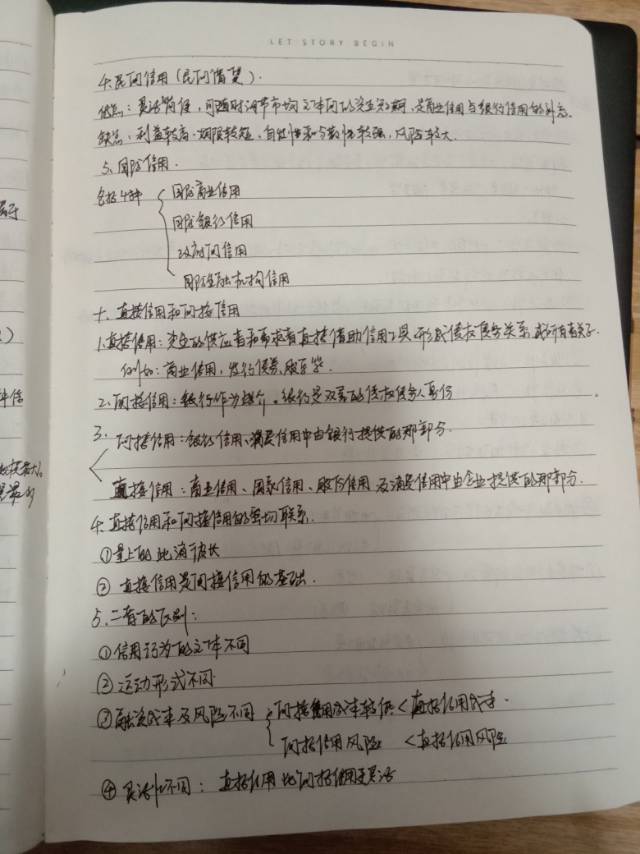 LET STORY BEGIN
4.民间信用(民间借贷).
优点:灵活简便,可随时调节市场主体间的资金余期,是商业信用与银行信用的补充.
缺点:利益较高.期限较短,自发性和分散性较强,风险较大.
5.国际信用.
包括4种
国际商业信用
国际银行信用
政府间信用
国际金融机构信用
十、直接信用和间接信用
1.直接信用:资金的供应者和需求者直接借助信用工具形成债权债务关系或所有者关系.
例如:商业信用,发行债券、股票等.
2.间接信用:银行作为媒介。银行是双重的债权债务人身份
3.间接信用:银行信用、消费信用中由银行提供的那部分.
直接信用:商业信用、国家信用、股份信用及消费信用中由企业提供的那部分.
4.直接信用和间接信用的密切联系.
①量上的此消彼长
②直接信用是间接信用的基础.
5.二者的区别:
①信用行为的主体不同
②运动形式不同
③融资成本及风险不同
间接信用成本较低<直接信用成本.
间接信用风险<直接信用风险
④灵活性不同:直接信用比间接信用更灵活